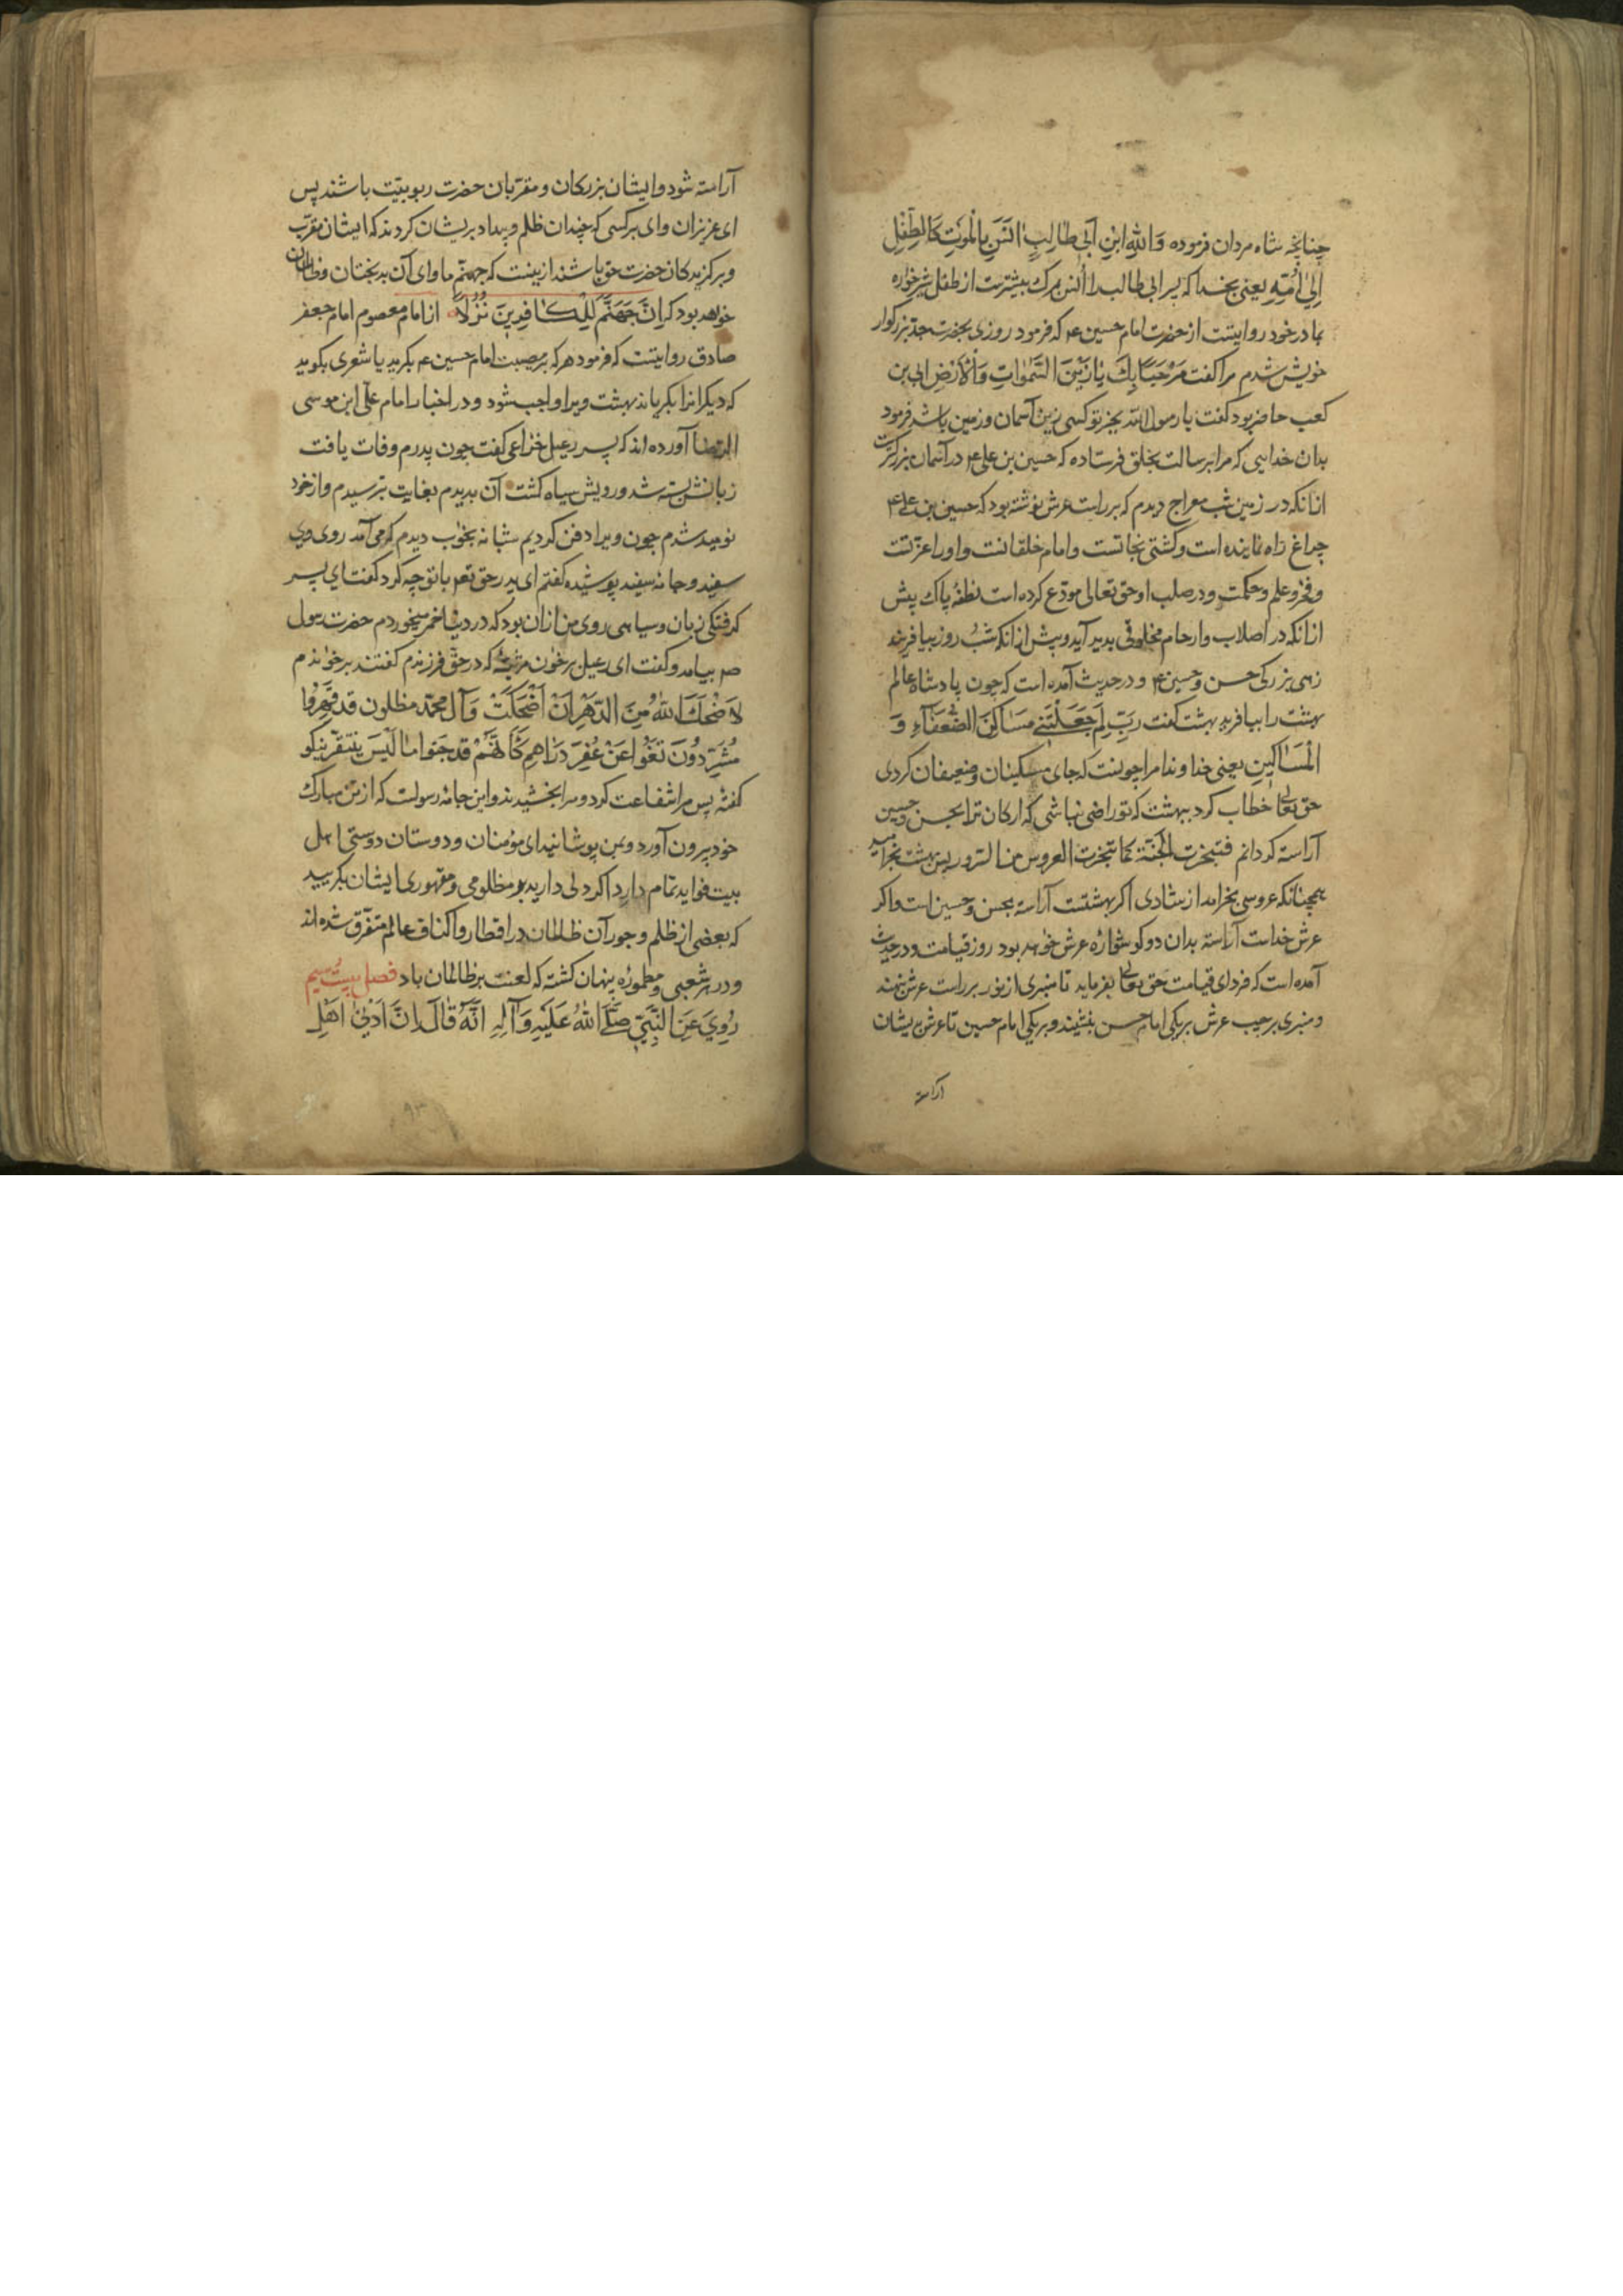 چنانچه شاه مردان فرموده وَاللّهِ ابْنِ اَبي طالِبٍ انَسَ بِالْمَوْتِ كَالطِّفْلِ
اِلىٰ اُمِّهِ يعنى بخدا كه پسر ابى طالب را اُنس بمرك بيشترست از طفل شيرخواره
بمادر خود روايتست از حضرت امام حسين ع م كه فرمود روزى بحضرت جد بزركوار
خويش شدم مرا كفت مَرْحَبًا بِكَ يا زَيْنَ السَّمٰواتِ وَالْاَرْضِ ابى بن
كعب حاضر بود كفت يا رسول اللّه بجز تو كسى زين آسمان و زمين باشد فرمود
بدان خدايى كه مرا برسالت بخلق فرستاده كه حسين بن على ع م در آسمان بزركترست
ازانكه در زمين شب معراج ديدم كه بر راست عرش نوشته بود كه حسين بن على ع م
چراغ راه نماينده است و كشتى نجاتست و امام خلقانست و او را عزّتست
و فخر و علم و حكمت و در صلب او حق تعالى مودع كرده است نطفهٔ پاك پيش
ازانكه در اصلاب و ارحام مخلوقى بديد آيد و پيش ازانكه شب و روز بيافريند
زهى بزركى حسن و حسين ع م و در حديث آمده است كه چون پادشاه عالم
بهشت را بيافريد بهشت كفت رَبِّ لِمَ جَعَلْتَنِي مَسَاكِنَ الضُّعَفَآءِ وَ
الْمَسَاكِينِ يعنى خداوندا مرا چونست كه جاى مسكينان و ضعيفان كردى
حق تعالى خطاب كرد ببهشت كه تو راضى نباشى كه اركان ترا بحسن و حسين
آراسته كردانم فتبخرت الجنّة كما تبخرت العروس من السرور پس بهشت بخراميد
همچنانكه عروسى بخرامد از شادى اكر بهشتست آراسته بحسن و حسين است و اكر
عرش خداست آراسته بدان دو كوشوارهٔ عرش خواهد بود روز قيامت و در حديث
آمده است كه فرداى قيامت حق تعالى بفرمايد تا منبرى از نور بر راست عرش بنهند
و منبرى بر چپ عرش بر يكى امام حسن بنشيند و بر يكى امام حسين تا عرش بيشان
آراسته
آراسته شود و ايشان بزركان و مقرّبان حضرت ربوبيّت باشند پس
اى عزيزان واى بر كسى كه چندان ظلم و بيداد بريشان كردند كه ايشان مقرّب
و بركزيدكان حضرت حق باشند ازينست كه جهنّم ماواى آن بدبختان و ظالمان
خواهد بود كه اِنَّ جَهَنَّمَ لِلْكَافِرِينَ نُزُلًا از امام معصوم امام جعفر
صادق روايتست كه فرمود هر كه بر مصيبت امام حسين ع م بكريد يا شعرى بكويد
كه ديكرانرا بكرياند بهشت ويرا واجب شود و در اخبار امام على ابن موسى
الرضا آورده اند كه پسر دعبل خزاعى كفت چون پدرم وفات يافت
زبانش بسته شد و رويش سياه كشت آن بديدم بغايت بترسيدم و از خود
نوميد شدم چون ويرا دفن كرديم شبانه بخواب ديدم كه مى آمد روى وى
سفيد و جامه سفيد پوشيده كفتم اى پدر حق تع م با تو چه كرد كفت اى پسر
كرفتكى زبان و سياهى روى من ازان بود كه در دنيا خمر ميخوردم حضرت رسول
صم بيامد و كفت اى دعبل برخوان مرثيهٔ كه در حق فرزندم كفتند برخواندم
لا ضْحَكَ اللهُ مِنَ الدَّهْرِ اِنْ اَضْحَكَتْ وَآل محمّد مظلون قد قُهِرُوا
مُشَرَّدُونَ نَغَوْا عَنْ عُفِرَ دَرَاهِمِ كَاَنَّهُمْ قد جَنَوا ما لَيْسَ يَنْتَقر نيكو
كفتهٔ پس مرا شفاعت كرد و مرا بخشيدند و اين جامهٔ رسولست كه از تن مبارك
خود بيرون آورد و بمن پوشانيد اى مؤمنان و دوستان دوستى اهل
بيت فوايد تمام دارد اكر دلى داريد بر مظلومى و مقهورى ايشان بكرييد
كه بعضى از ظلم و جور آن ظالمان در اقطار و اكناف عالم متفرّق شده اند
و در هر شعبى و مطمورهٔ پنهان كشته كه لعنت بر ظالمان باد فصل بيست سيم
رُوِيَ عَنِ النَّبِيّ صَلَّى اللهُ عَلَيْهِ وَآلِهِ انَّهُ قَالَ اِنَّ اَدْنىٰ اَهْلِ
٩٣